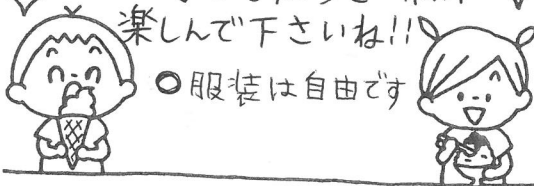 楽しんで下さいね!!
○服装は自由です